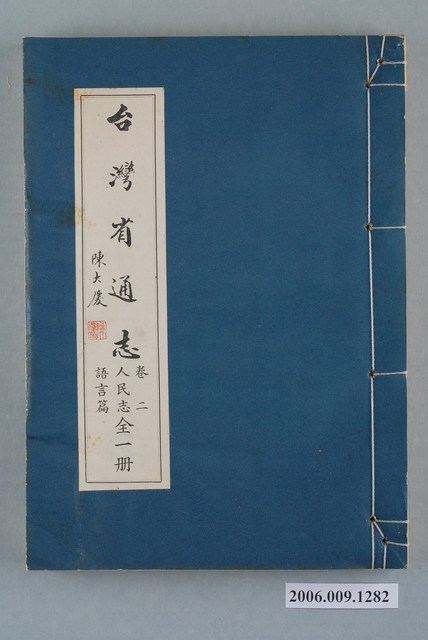 台灣省通志
陳大慶
卷二
人民志全一冊
語言篇
2006.009.1282